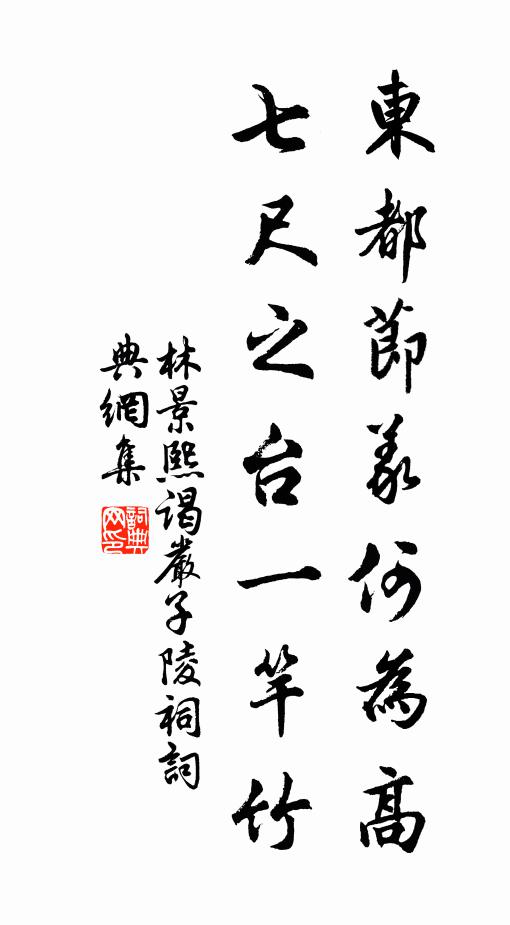 東都節義何為高
七尺之台一竿竹
林景熙謁嚴子陵祠詞
典網集
詞典網印